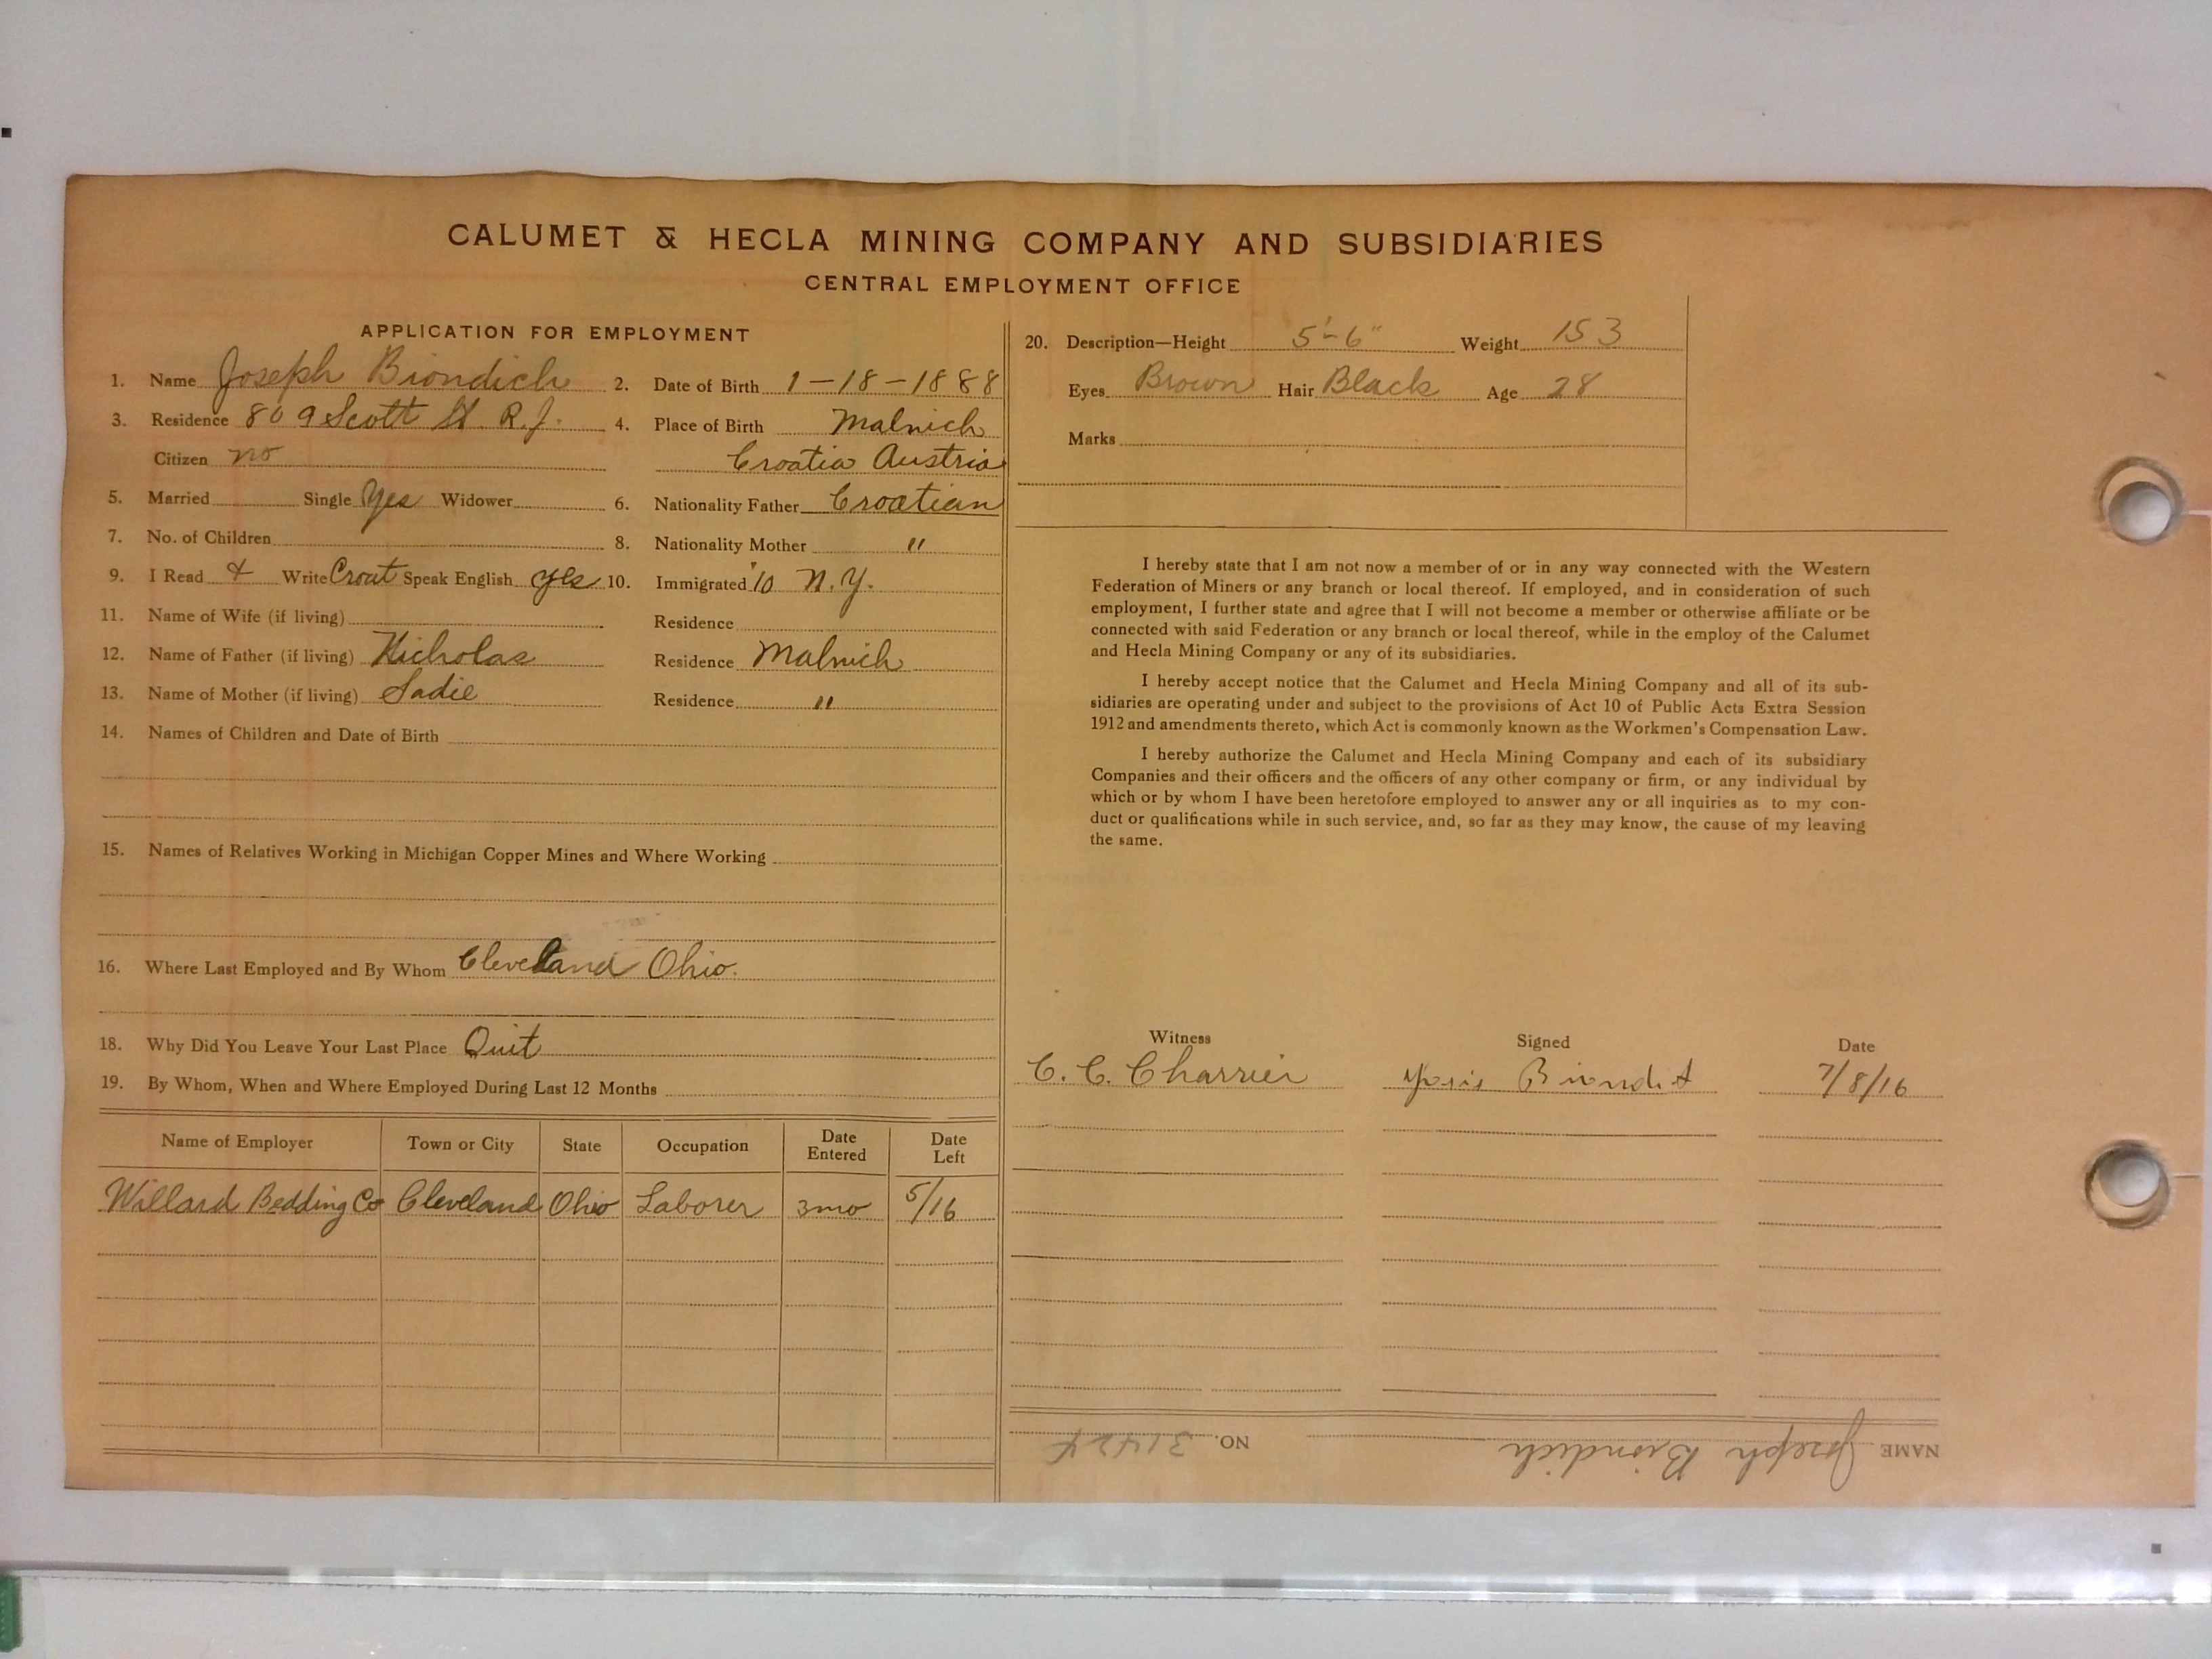 CALUMET & HECLA MINING COMPANY AND SUBSIDIARIES
CENTRAL EMPLOYMENT OFFICE
APPLICATION FOR EMPLOYMENT
1. Name Joseph Biondich 2. Date of Birth 1-18-1888
3. Residence 809 Scott St. R.J. 4. Place of Birth Malnich
Citizen no Croatia Austria
5. Married Single Yes Widower 6. Nationality Father Croatian
7. No. of Children 8. Nationality Mother "
9. I Read & Write Croat Speak English yes 10. Immigrated '10 N.Y.
11. Name of Wife (if living) Residence
12. Name of Father (if living) Nicholas Residence Malnich
13. Name of Mother (if living) Sadie Residence "
14. Names of Children and Date of Birth
15. Names of Relatives Working in Michigan Copper Mines and Where Working
16. Where Last Employed and By Whom Cleveland Ohio.
18. Why Did You Leave Your Last Place Quit
19. By Whom, When and Where Employed During Last 12 Months
Name of Employer Town or City State Occupation Date Entered Date Left
Willard Bedding Co Cleveland Ohio Laborer 3mo 5/16
20. Description—Height 5'-6" Weight 153
Eyes Brown Hair Black Age 28
Marks
I hereby state that I am not now a member of or in any way connected with the Western
Federation of Miners or any branch or local thereof. If employed, and in consideration of such
employment, I further state and agree that I will not become a member or otherwise affiliate or be
connected with said Federation or any branch or local thereof, while in the employ of the Calumet
and Hecla Mining Company or any of its subsidiaries.
I hereby accept notice that the Calumet and Hecla Mining Company and all of its sub-
sidiaries are operating under and subject to the provisions of Act 10 of Public Acts Extra Session
1912 and amendments thereto, which Act is commonly known as the Workmen's Compensation Law.
I hereby authorize the Calumet and Hecla Mining Company and each of its subsidiary
Companies and their officers and the officers of any other company or firm, or any individual by
which or by whom I have been heretofore employed to answer any or all inquiries as to my con-
duct or qualifications while in such service, and, so far as they may know, the cause of my leaving
the same.
Witness Signed Date
C. C. Charrier 7/8/16
NAME Joseph Biondich NO. 31424